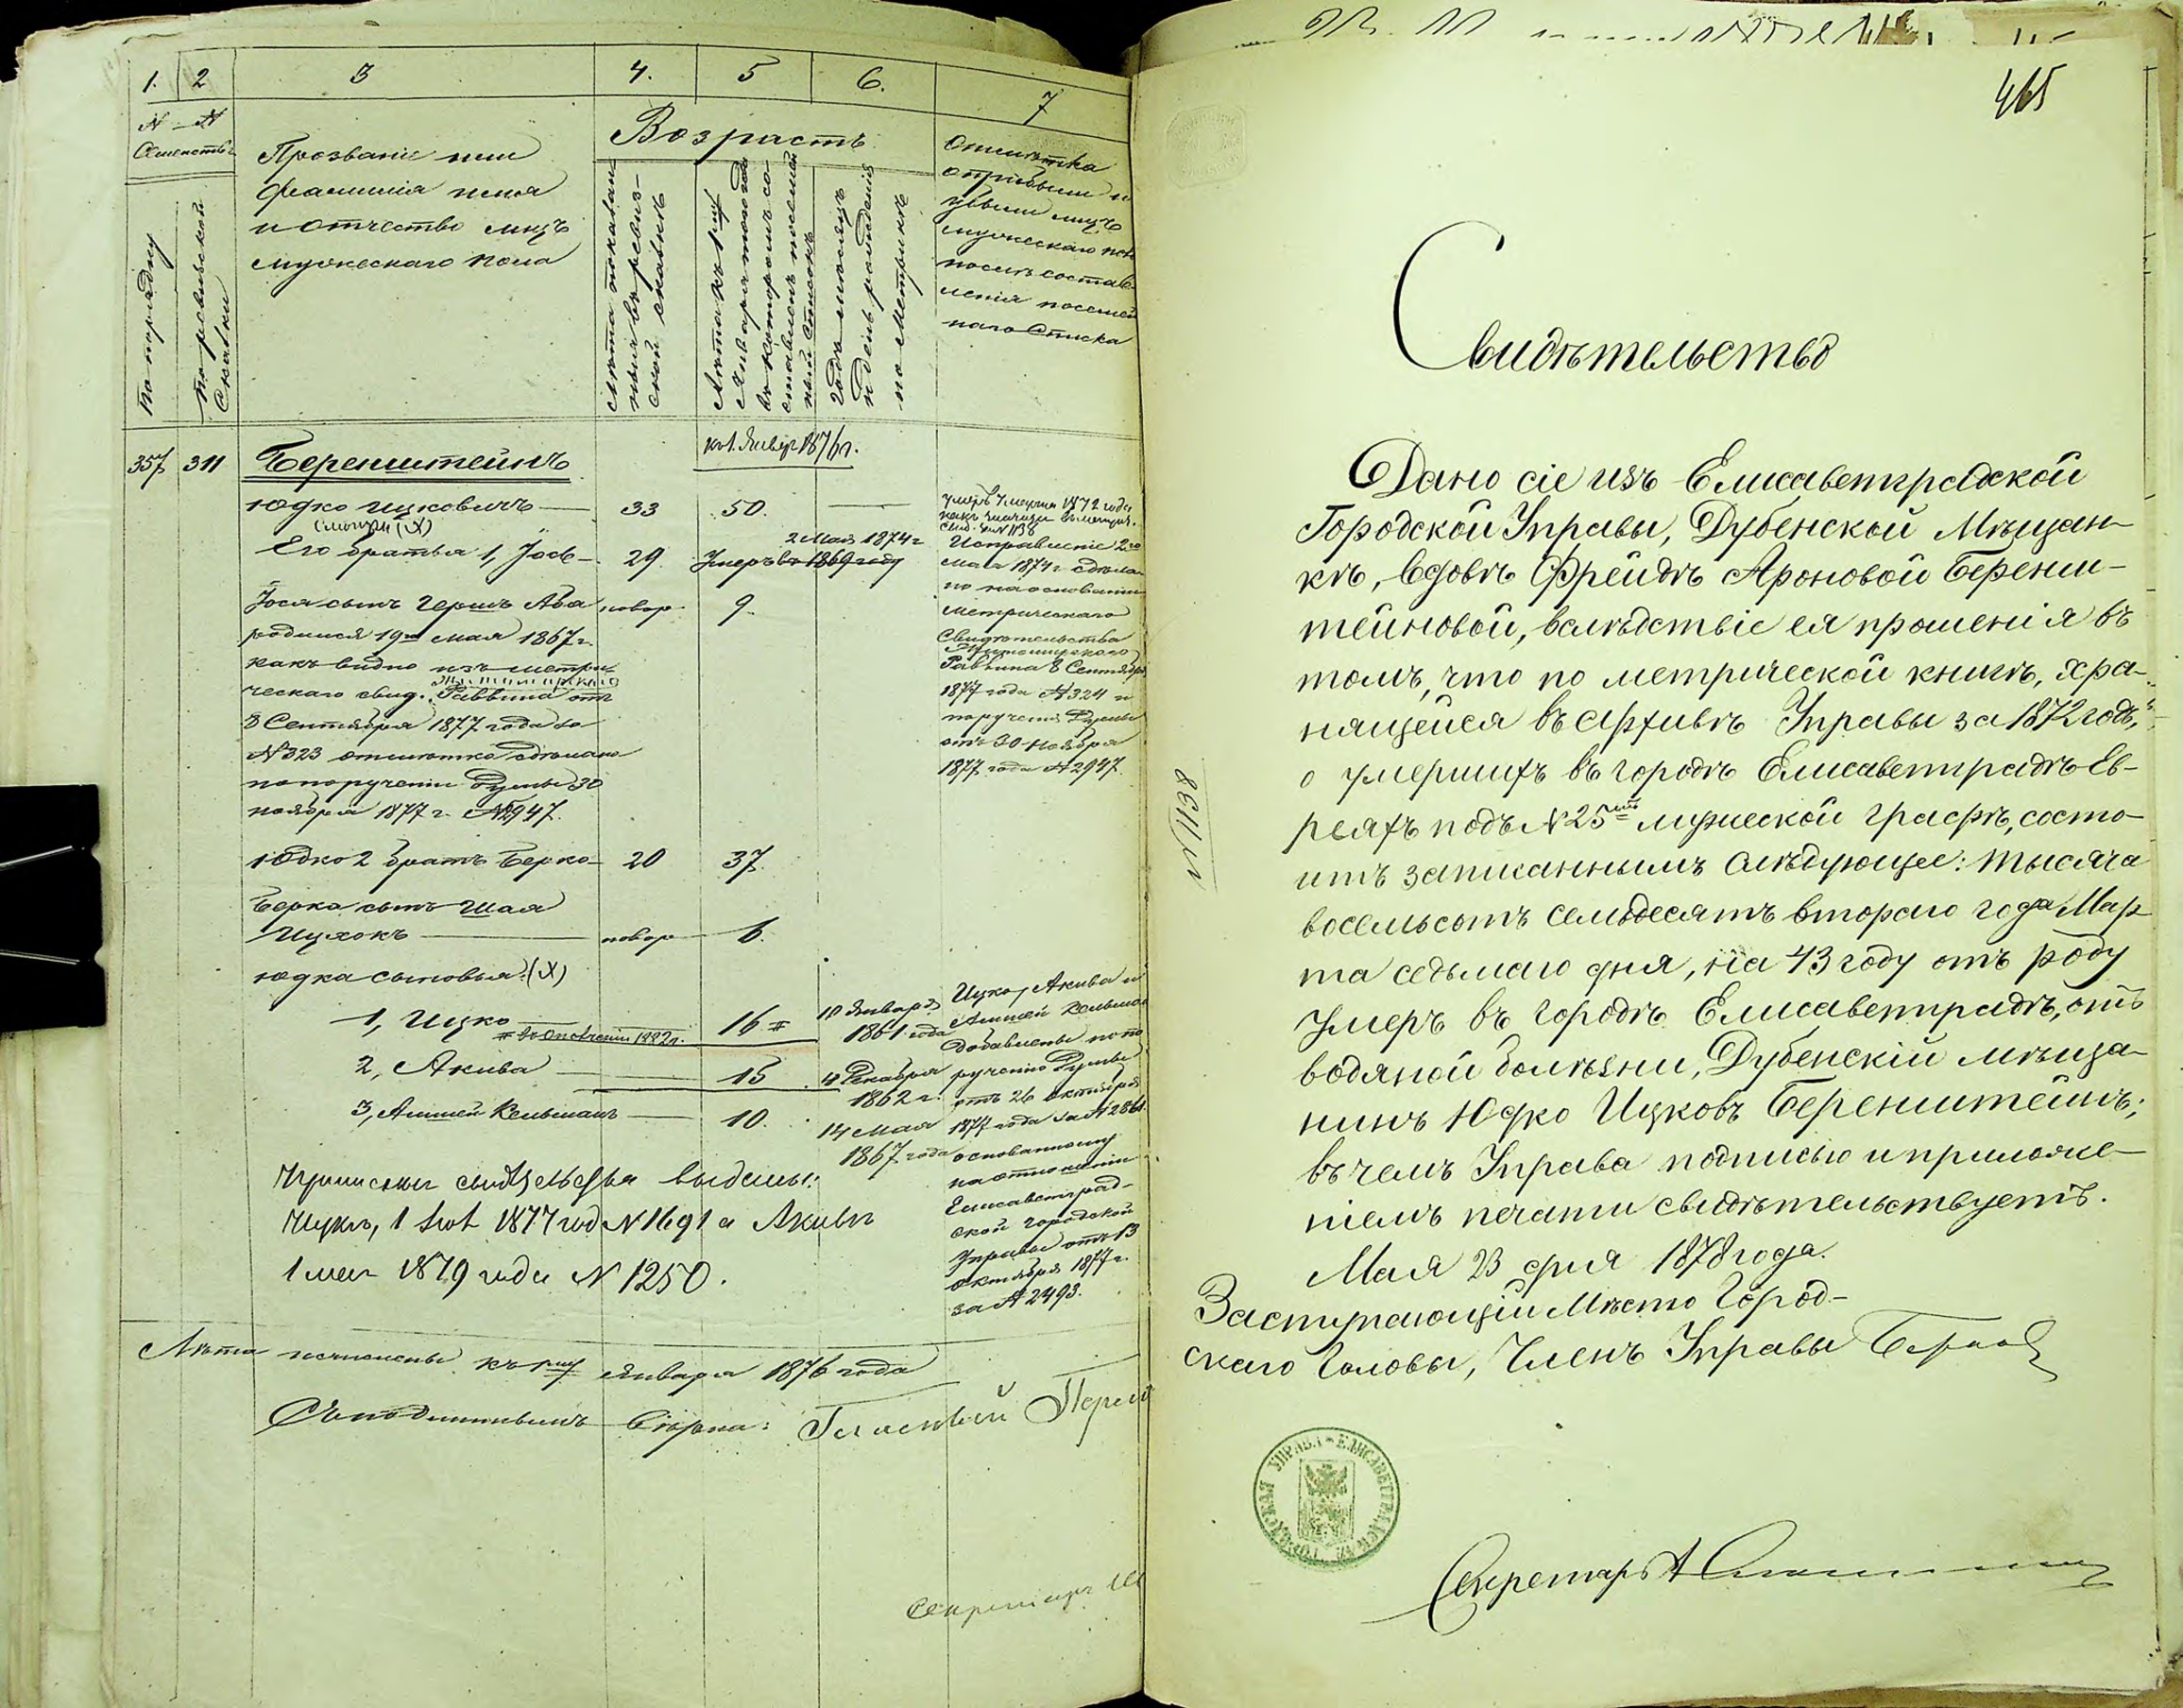 1. 2 3 4. 5 6. 7
N N
Семействъ
По порядку
По ревизской
Сказки
Прозваніе или
фамилія имя
и отчество лицъ
мужескаго пола
Возрастъ
Лета показан-
ныя въ ревиз-
ской сказке
Лета къ 1му
Января того года
въ которомъ со-
ставленъ посемей
ный списокъ
Годъ месяцъ
и день рожденія
по метрике
Отметка
о прибыли и
убыли лицъ
мужескаго пол
после состав-
ленія посемей
наго Списка
къ 1. Январ 1876 г.
357 311 Беренштейнъ
Юдко Ицковичъ — 33 50. —
(смотри (X)
умеръ 7 марта 1872 года
свид. за N 1138
Его братья 1, Іось — 29. Умеръ въ 1869 году
2 Мая 1874 г
Исправленіе 2го
мая 1874 г. сдела
но на основаніи
метрическаго
Свидетельства
Житомирскаго
Раввина 8 Сентября
1877 года N 324 и
порученія Думы
отъ 30 Ноября
1877 года N 2947.
Іося сынъ Гершъ Аба новор. 9.
родился 19го мая 1867 г.
какъ видно изъ метри
ческаго свид. Житомирскаго Раввина отъ
8 Сентября 1877 года за
N 323 отметка сделана
по порученію Думы 30
ноября 1877 г. N 2947.
Юдко 2 братъ Берко — 20 37.
Берка сынъ Шая
Ицхокъ — новор 6.
Юдка сыновья: (X)
1, Ицко — 16 #
# въ отношеніи 1882 г.
18 Января
1861 года
2, Акива — 15
18 Декабря
1862 г.
3, Аншей Кельманъ — 10.
14 Мая
1867 года
Ицко, Акива и
Аншей Кельман
добавлены по по
рученію Думы
отъ 26 Октября
1877 года за N 2861.
основанному
на отношеніи
Елисаветград-
ской городской
Управы отъ 13
октября 1877 г.
за N 2493.
выданы:
Ицке, 1 1877 год N 1691 а Акиве
1 мая 1879 года N 1250.
Лета исчислены къ 1му января 1876 года
Съ подлиннымъ верно:
Секретарь
465
Свидѣтельство
N 1138
Дано сіе изъ Елисаветградской
Городской Управы, Дубенской Мѣщан-
кѣ, вдовѣ Фрейдѣ Ароновой Беренш-
тейновой, вслѣдствіе ея прошенія въ
томъ, что по метрической книгѣ, хра-
нящейся въ архивѣ Управы за 1872 годъ,
о умершихъ въ городѣ Елисаветградѣ Ев-
реяхъ подъ N 25мъ мужеской графѣ, состо-
итъ записаннымъ слѣдующее: тысяча
восемьсотъ семьдесятъ втораго года Мар
та седьмаго дня, на 43 году отъ роду
умеръ въ городѣ Елисаветградѣ, отъ
водяной болѣзни, Дубенскій мѣща-
нинъ Юдко Ицковъ Беренштейнъ;
въ чемъ Управа подписью и приложе-
ніемъ печати свидѣтельствуетъ.
Мая 23 дня 1878 года.
Заступающій Мѣсто Город-
скаго Головы, Членъ Управы
ЕЛИСАВЕТГРАДСКАЯ ГОРОДСКАЯ УПРАВА
Секретарь